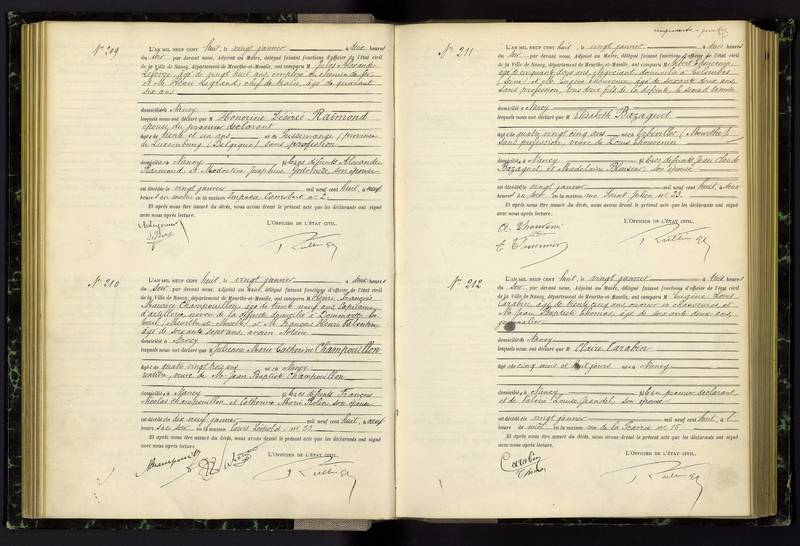 N° 209
L'AN MIL NEUF CENT huit, le vingt janvier à deux heures
du soir, par devant nous, Adjoint au Maire, délégué faisant fonctions d'officier de l'état civil
de la Ville de Nancy, département de Meurthe-et-Moselle, ont comparu M. Jules Alexandre
âgé de vingt huit ans, employé au chemin de fer
et M. Henri Legrand, chef de train, âgé de quarante
six ans
domiciliés à Nancy
lesquels nous ont déclaré que M Honorine Désirée Raimond
épouse du premier déclarant
âgée de trente et un ans née à province
de Luxembourg (Belgique) sans profession
domiciliée à Nancy des défunts Alexandre
Raimond, et Joséphine son épouse
est décédée le vingt janvier mil neuf cent huit, à neuf
heures du matin en la maison impasse Canrobert n° 2
Et après nous être assuré du décès, nous avons dressé le présent acte que les déclarants ont signé
avec nous après lecture.
L'OFFICIER DE L'ÉTAT CIVIL,
N° 210
L'AN MIL NEUF CENT huit, le vingt janvier à deux heures
du soir, par devant nous, Adjoint au Maire, délégué faisant fonctions d'officier de l'état civil
de la Ville de Nancy, département de Meurthe-et-Moselle, ont comparu M. Henri François
Maurice Champouillon, âgé de trente neuf ans, Capitaine
d'artillerie, neveu de la défunte domicilié à Dommartin les
Toul (Meurthe et Moselle) et M. François Henri
âgé de soixante sept ans, ancien Notaire
domiciliés à Nancy
lesquels nous ont déclaré que Julienne Marie Catherine Champouillon
âgée de quatre vingt trois ans née à Nancy
rentière, veuve de M. Jean Baptiste Champouillon
domiciliée à Nancy des défunts François
Nicolas Champouillon et Catherine Marie son épouse
est décédée le dix neuf janvier mil neuf cent huit, à neuf
heures du soir en la maison Cours Léopold, n° 23
Et après nous être assuré du décès, nous avons dressé le présent acte que les déclarants ont signé
avec nous après lecture.
L'OFFICIER DE L'ÉTAT CIVIL,
N° 211
L'AN MIL NEUF CENT huit, le vingt janvier à deux heures
du soir, par devant nous, Adjoint au Maire, délégué faisant fonctions d'officier de l'état civil
de la Ville de Nancy, département de Meurthe-et-Moselle, ont comparu M. Albert Thouvenin
âgé de cinquante trois ans, négociant domicilié à Colombes
(Seine) et M. Eugène Thouvenin, âgé de soixante deux ans,
sans profession, tous deux fils de la défunte, le second
domicilié à Nancy
lesquels nous ont déclaré que M Elisabeth Bazaquet
âgée de quatre vingt cinq ans née à (Meurthe)
sans profession, veuve de Louis Thouvenin
domiciliée à Nancy des défunts Jean Claude
Bazaquet, et Madelaine son épouse
est décédée le vingt janvier mil neuf cent huit, à deux
heures du matin en la maison rue Saint Julien n° 33
Et après nous être assuré du décès, nous avons dressé le présent acte que les déclarants ont signé
avec nous après lecture.
L'OFFICIER DE L'ÉTAT CIVIL,
A. Thouvenin
E. Thouvenin
N° 212
L'AN MIL NEUF CENT huit, le vingt janvier à deux heures
du soir, par devant nous, Adjoint au Maire, délégué faisant fonctions d'officier de l'état civil
de la Ville de Nancy, département de Meurthe-et-Moselle, ont comparu M. Eugène Louis
Carabin, âgé de trente cinq ans, ouvrier en chaussures et
M. Jean Baptiste Thomas, âgé de soixante deux ans,
journalier
domiciliés à Nancy
lesquels nous ont déclaré que M Claire Carabin
âgée de cinq mois et huit jours née à Nancy
domiciliée à Nancy du premier déclarant,
et de Valérie Louise son épouse
est décédée le vingt janvier mil neuf cent huit, à
heures de midi en la maison rue de la Prairie n° 15
Et après nous être assuré du décès, nous avons dressé le présent acte que les déclarants ont signé
avec nous après lecture.
L'OFFICIER DE L'ÉTAT CIVIL,
Carabin